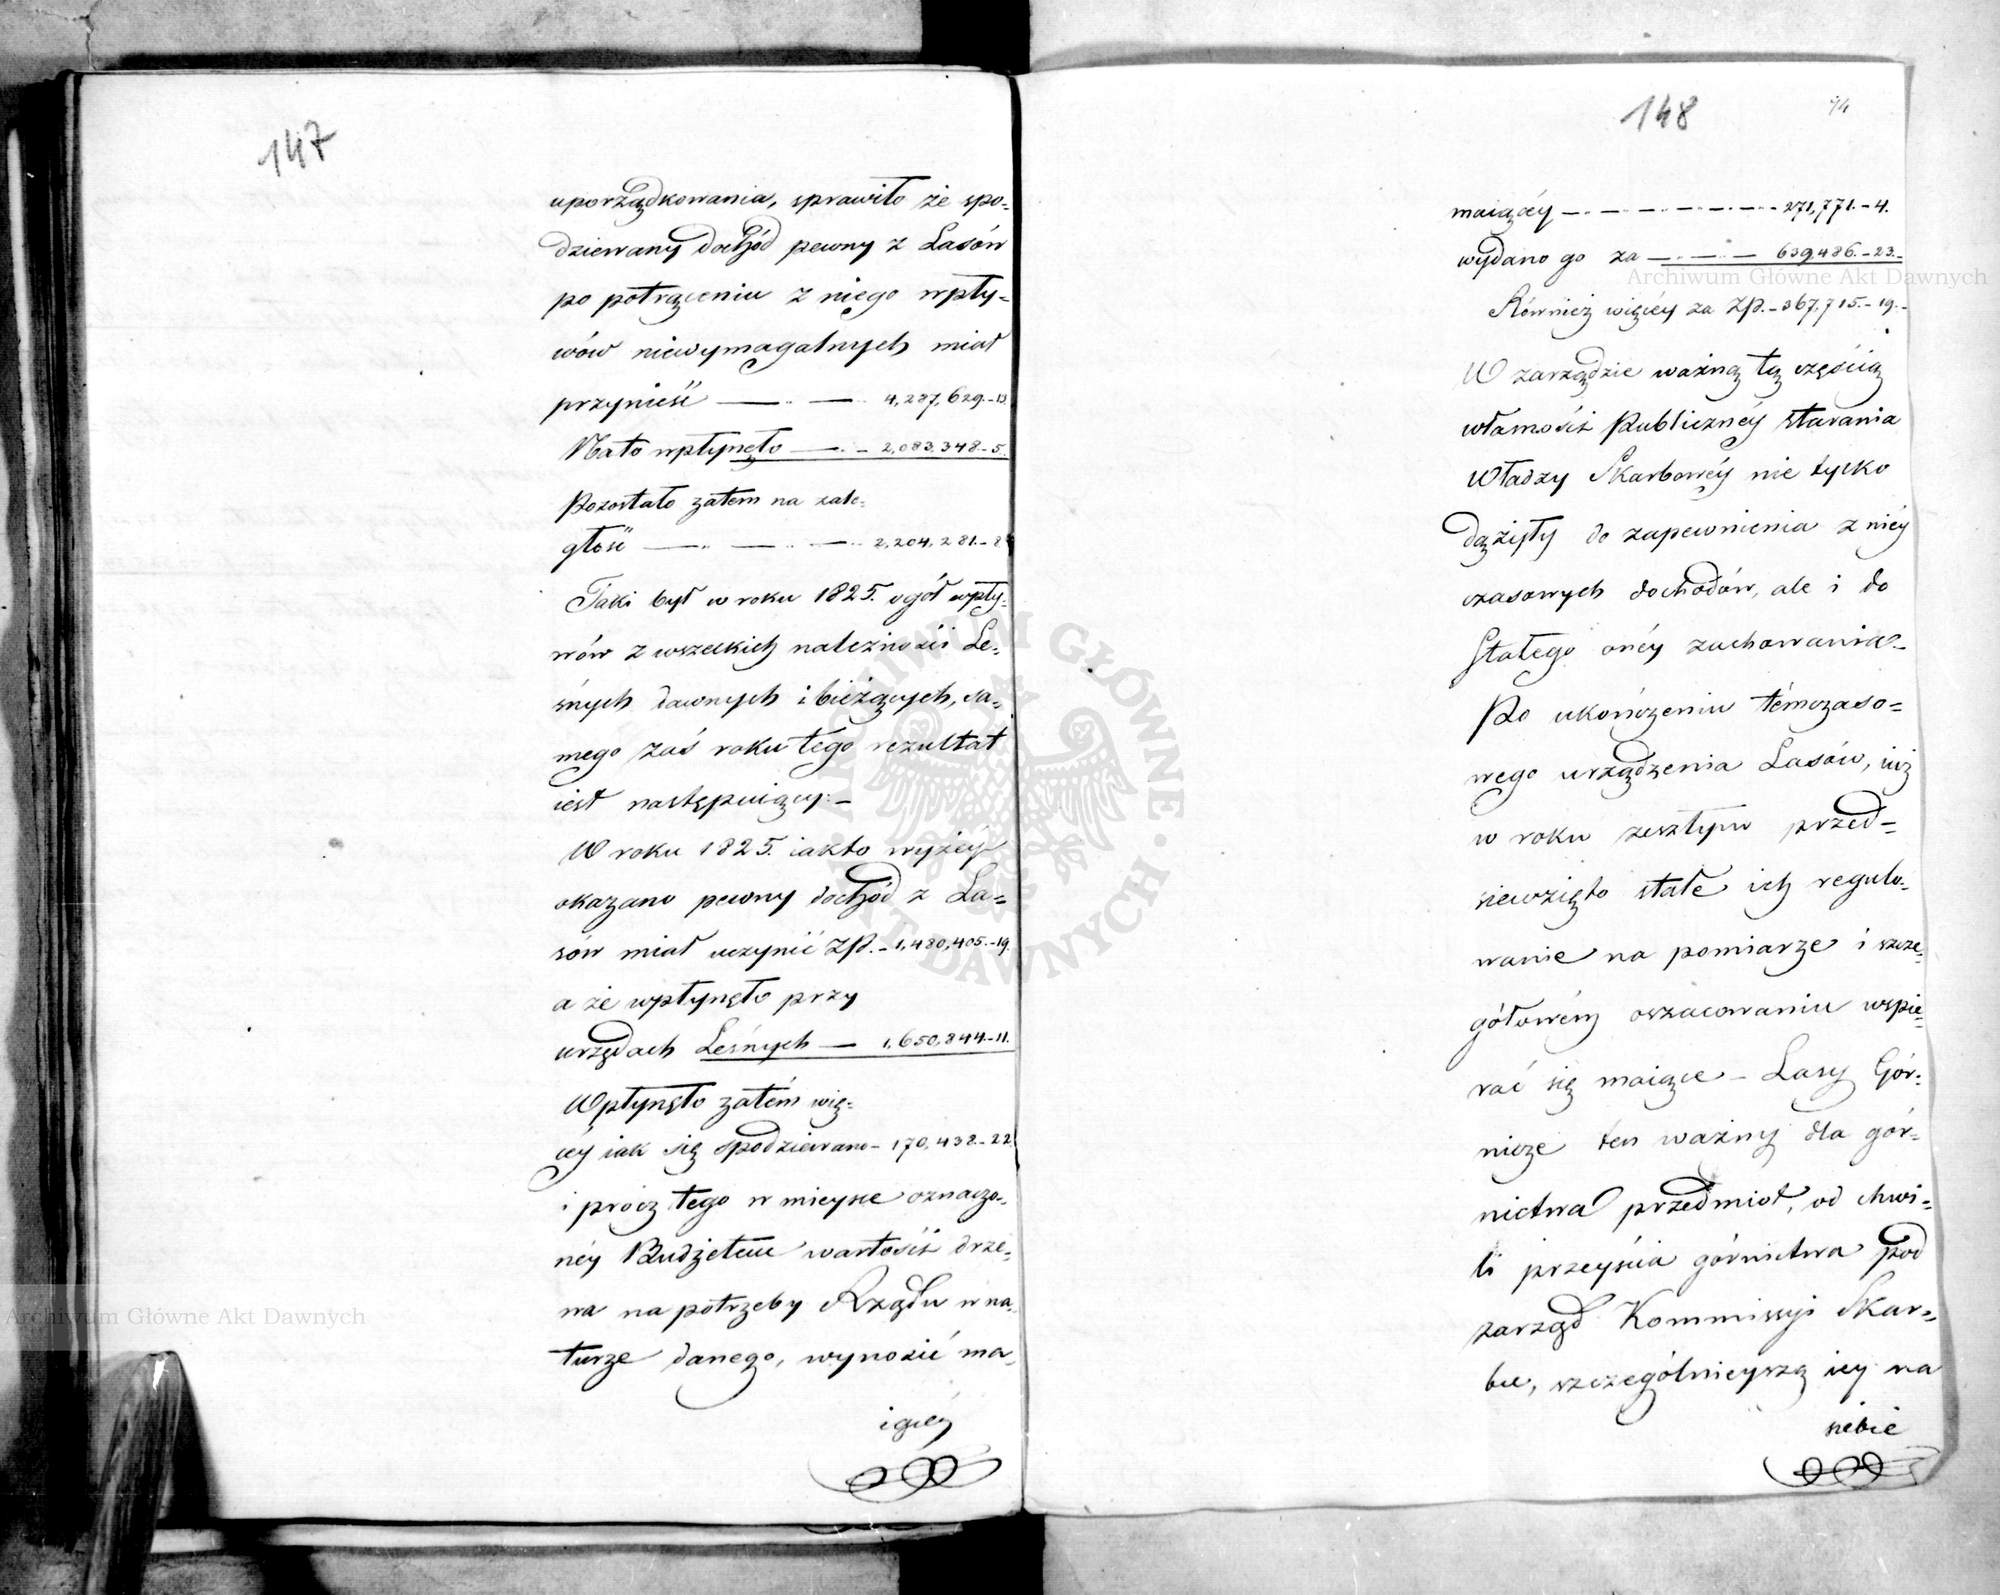 147
uporządkowania, sprawiło że spo-
dziewany dochód pewny z Lasów
po potrąceniu z niego wpły-
wów niewymagalnych miał
przynieść — 4,287,629.-13.
Nato wpłynęło — 2,083,348.-5.
Pozostało zatem na zale-
głość — 2,204,281.-8.
Taki był w roku 1825. ogół wpły-
wów z wszelkich należności Le-
śnych dawnych i bieżących, sa-
mego zaś roku tego rezultat
iest następuiący:-
W roku 1825. iakto wyżéy
okazano pewny dochód z La-
sów miał uczynić Zp.-1,480,405.-19.
a że wpłynęło przy
urzędach Leśnych — 1,650,844.-11.
Wpłynęło zatém wię-
céy iak się spodziewano - 170,438.-22.
i prócz tego w mieysce oznaczo-
néy Budżetem wartości drze-
wa na potrzeby Rządu w na-
turze danego, wynosić ma-
iącéy
148
74
maiącéy — 271,771.-4.
wydano go za — 639,486.-23.-
Również więcéy za Zp.-367,715.-19.-
W zarządzie ważną tą częścią
własności Publicznéy starania
Władzy Skarbowéy nie tylko
dążyły do zapewnienia z niéy
czasowych dochodów, ale i do
Stałego onéy zachowania.-
Po ukończeniu témczaso-
wego urządzenia Lasów, iuż
w roku zeszłym przed-
siewzięto stałe ich regulo-
wanie na pomiarze i szcze-
gółowém oszacowaniu wspie-
rać się maiące - Lasy Gór-
nicze ten ważny dla gór-
nictwa przedmiot, od chwi-
li przeyścia górnictwa pod
zarząd Kommissyi Skar-
bu, szczególnieyszą iey na
siebie
Archiwum Główne Akt Dawnych
Archiwum Główne Akt Dawnych
ARCHIWUM GŁÓWNE AKT DAWNYCH